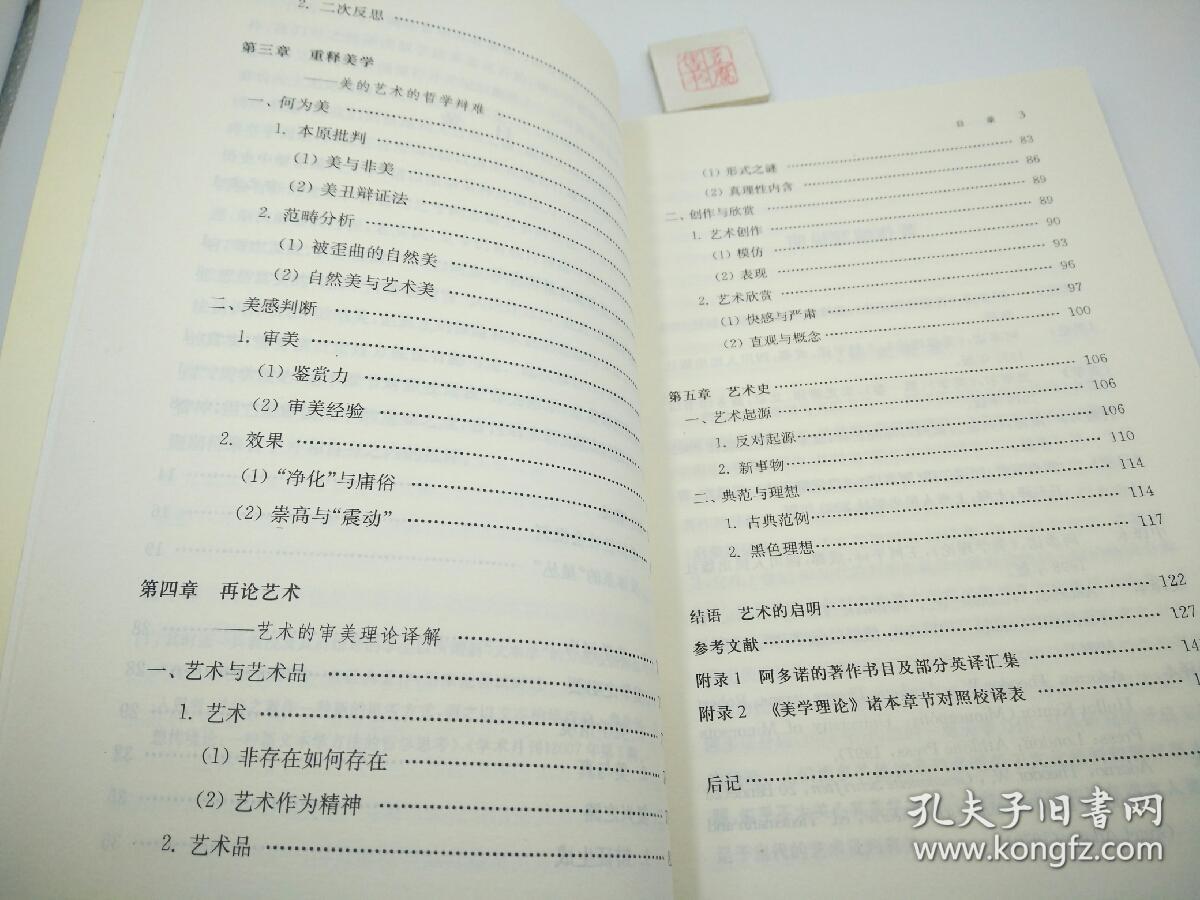 2. 二次反思 ……
第三章 重释美学 ……
——美的艺术的哲学辩难 ……
一、何为美 ……
1. 本原批判 ……
(1) 美与非美 ……
(2) 美丑辩证法 ……
2. 范畴分析 ……
(1) 被歪曲的自然美 ……
(2) 自然美与艺术美 ……
二、美感判断 ……
1. 审美 ……
(1) 鉴赏力 ……
(2) 审美经验 ……
2. 效果 ……
(1) “净化”与庸俗 ……
(2) 崇高与“震动” ……
第四章 再论艺术
——艺术的审美理论译解 ……
一、艺术与艺术品 ……
1. 艺术 ……
(1) 非存在如何存在 ……
(2) 艺术作为精神 ……
2. 艺术品 ……
目 录 3
(1) 形式之谜 …… 83
(2) 真理性内含 …… 86
二、创作与欣赏 …… 89
1. 艺术创作 …… 89
(1) 模仿 …… 90
(2) 表现 …… 93
2. 艺术欣赏 …… 96
(1) 快感与严肃 …… 97
(2) 直观与概念 …… 100
第五章 艺术史 …… 106
一、艺术起源 …… 106
1. 反对起源 …… 106
2. 新事物 …… 110
二、典范与理想 …… 114
1. 古典范例 …… 114
2. 黑色理想 …… 117
结语 艺术的启明 …… 122
参考文献 …… 127
附录1 阿多诺的著作书目及部分英译汇集 …… 14
附录2 《美学理论》诸本章节对照校译表 …… 1
后记 ……
孔夫子旧书网
www.kongfz.com